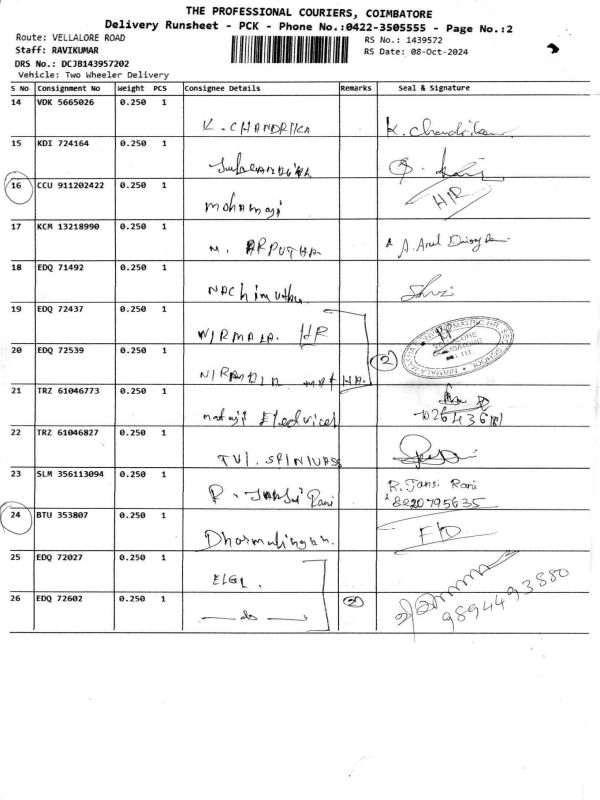 THE PROFESSIONAL COURIERS, COIMBATORE
Delivery Runsheet - PCK - Phone No.:0422-3505555 - Page No.:2
Route: VELLALORE ROAD
RS No.: 1439572
Staff: RAVIKUMAR
RS Date: 08-Oct-2024
DRS No.: DCJB143957202
Vehicle: Two Wheeler Delivery
S No Consignment No Weight PCS Consignee Details Remarks Seal & Signature
14 VDK 5665026 0.250 1
K. CHANDRIKA K. Chandrika
15 KDI 724164 0.250 1
16 CCU 911202422 0.250 1
H/R
17 KCM 13218990 0.250 1
M. ARPUTHA A. Arul
18 EDQ 71492 0.250 1
NAChimuthu
19 EDQ 72437 0.250 1
NIRMALA. HR
20 EDQ 72539 0.250 1
2
21 TRZ 61046773 0.250 1
22 TRZ 61046827 0.250 1
TVI. SRINIVASS
23 SLM 356113094 0.250 1
R. Jansi Rani
R. Rani 8220795635
24 BTU 353807 0.250 1
Dharmalingam. F/D
25 EDQ 72027 0.250 1
ELGI.
26 EDQ 72602 0.250 1
do 2
9894493880